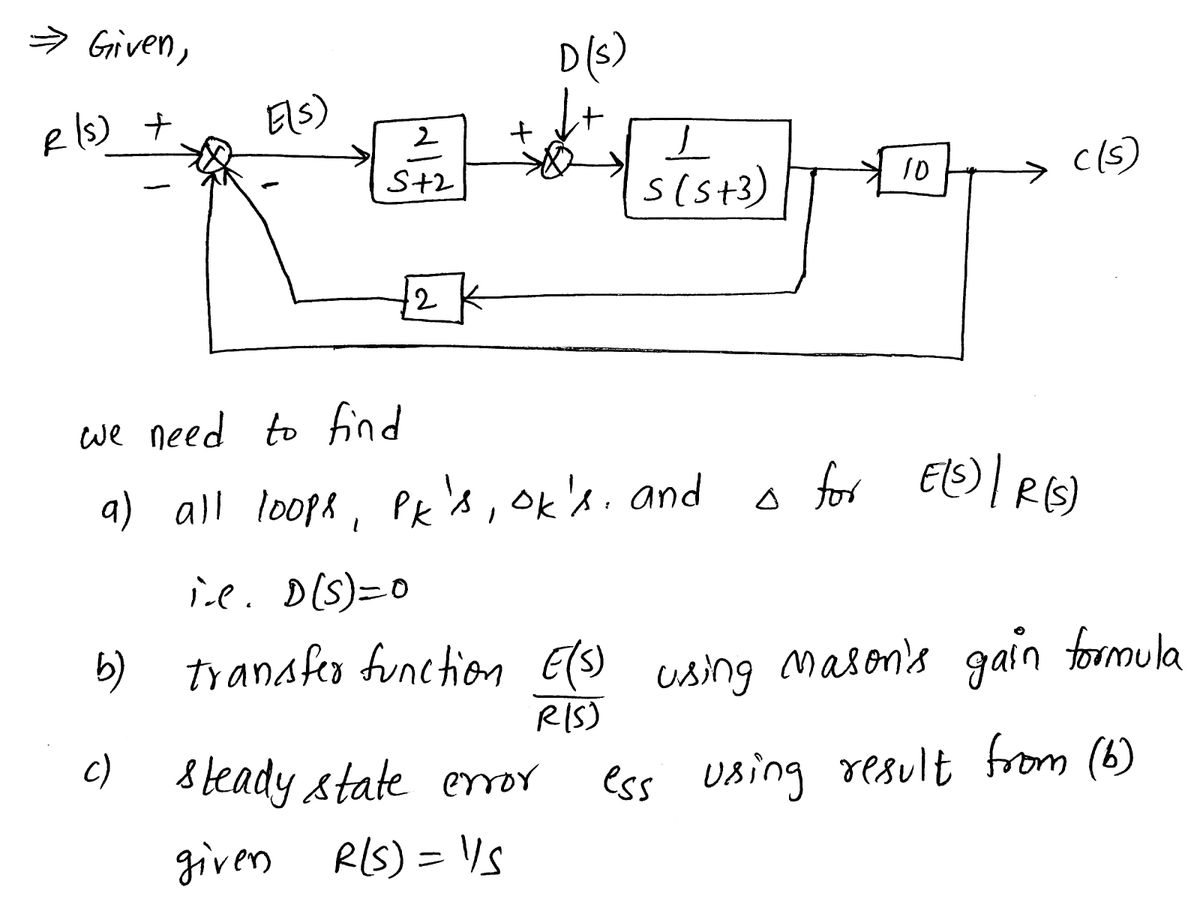 ⇒ Given,
D(s)
R(s) + E(s) + +
2/(s+2) 1/(s(s+3)) 10 C(s)
- -
2
we need to find
a) all loops, Pk's, Δk's. and Δ for E(s) | R(s)
i.e. D(s)=0
b) transfer function E(s)/R(s) using Mason's gain formula
c) steady state error ess using result from (b)
given R(s) = 1/s